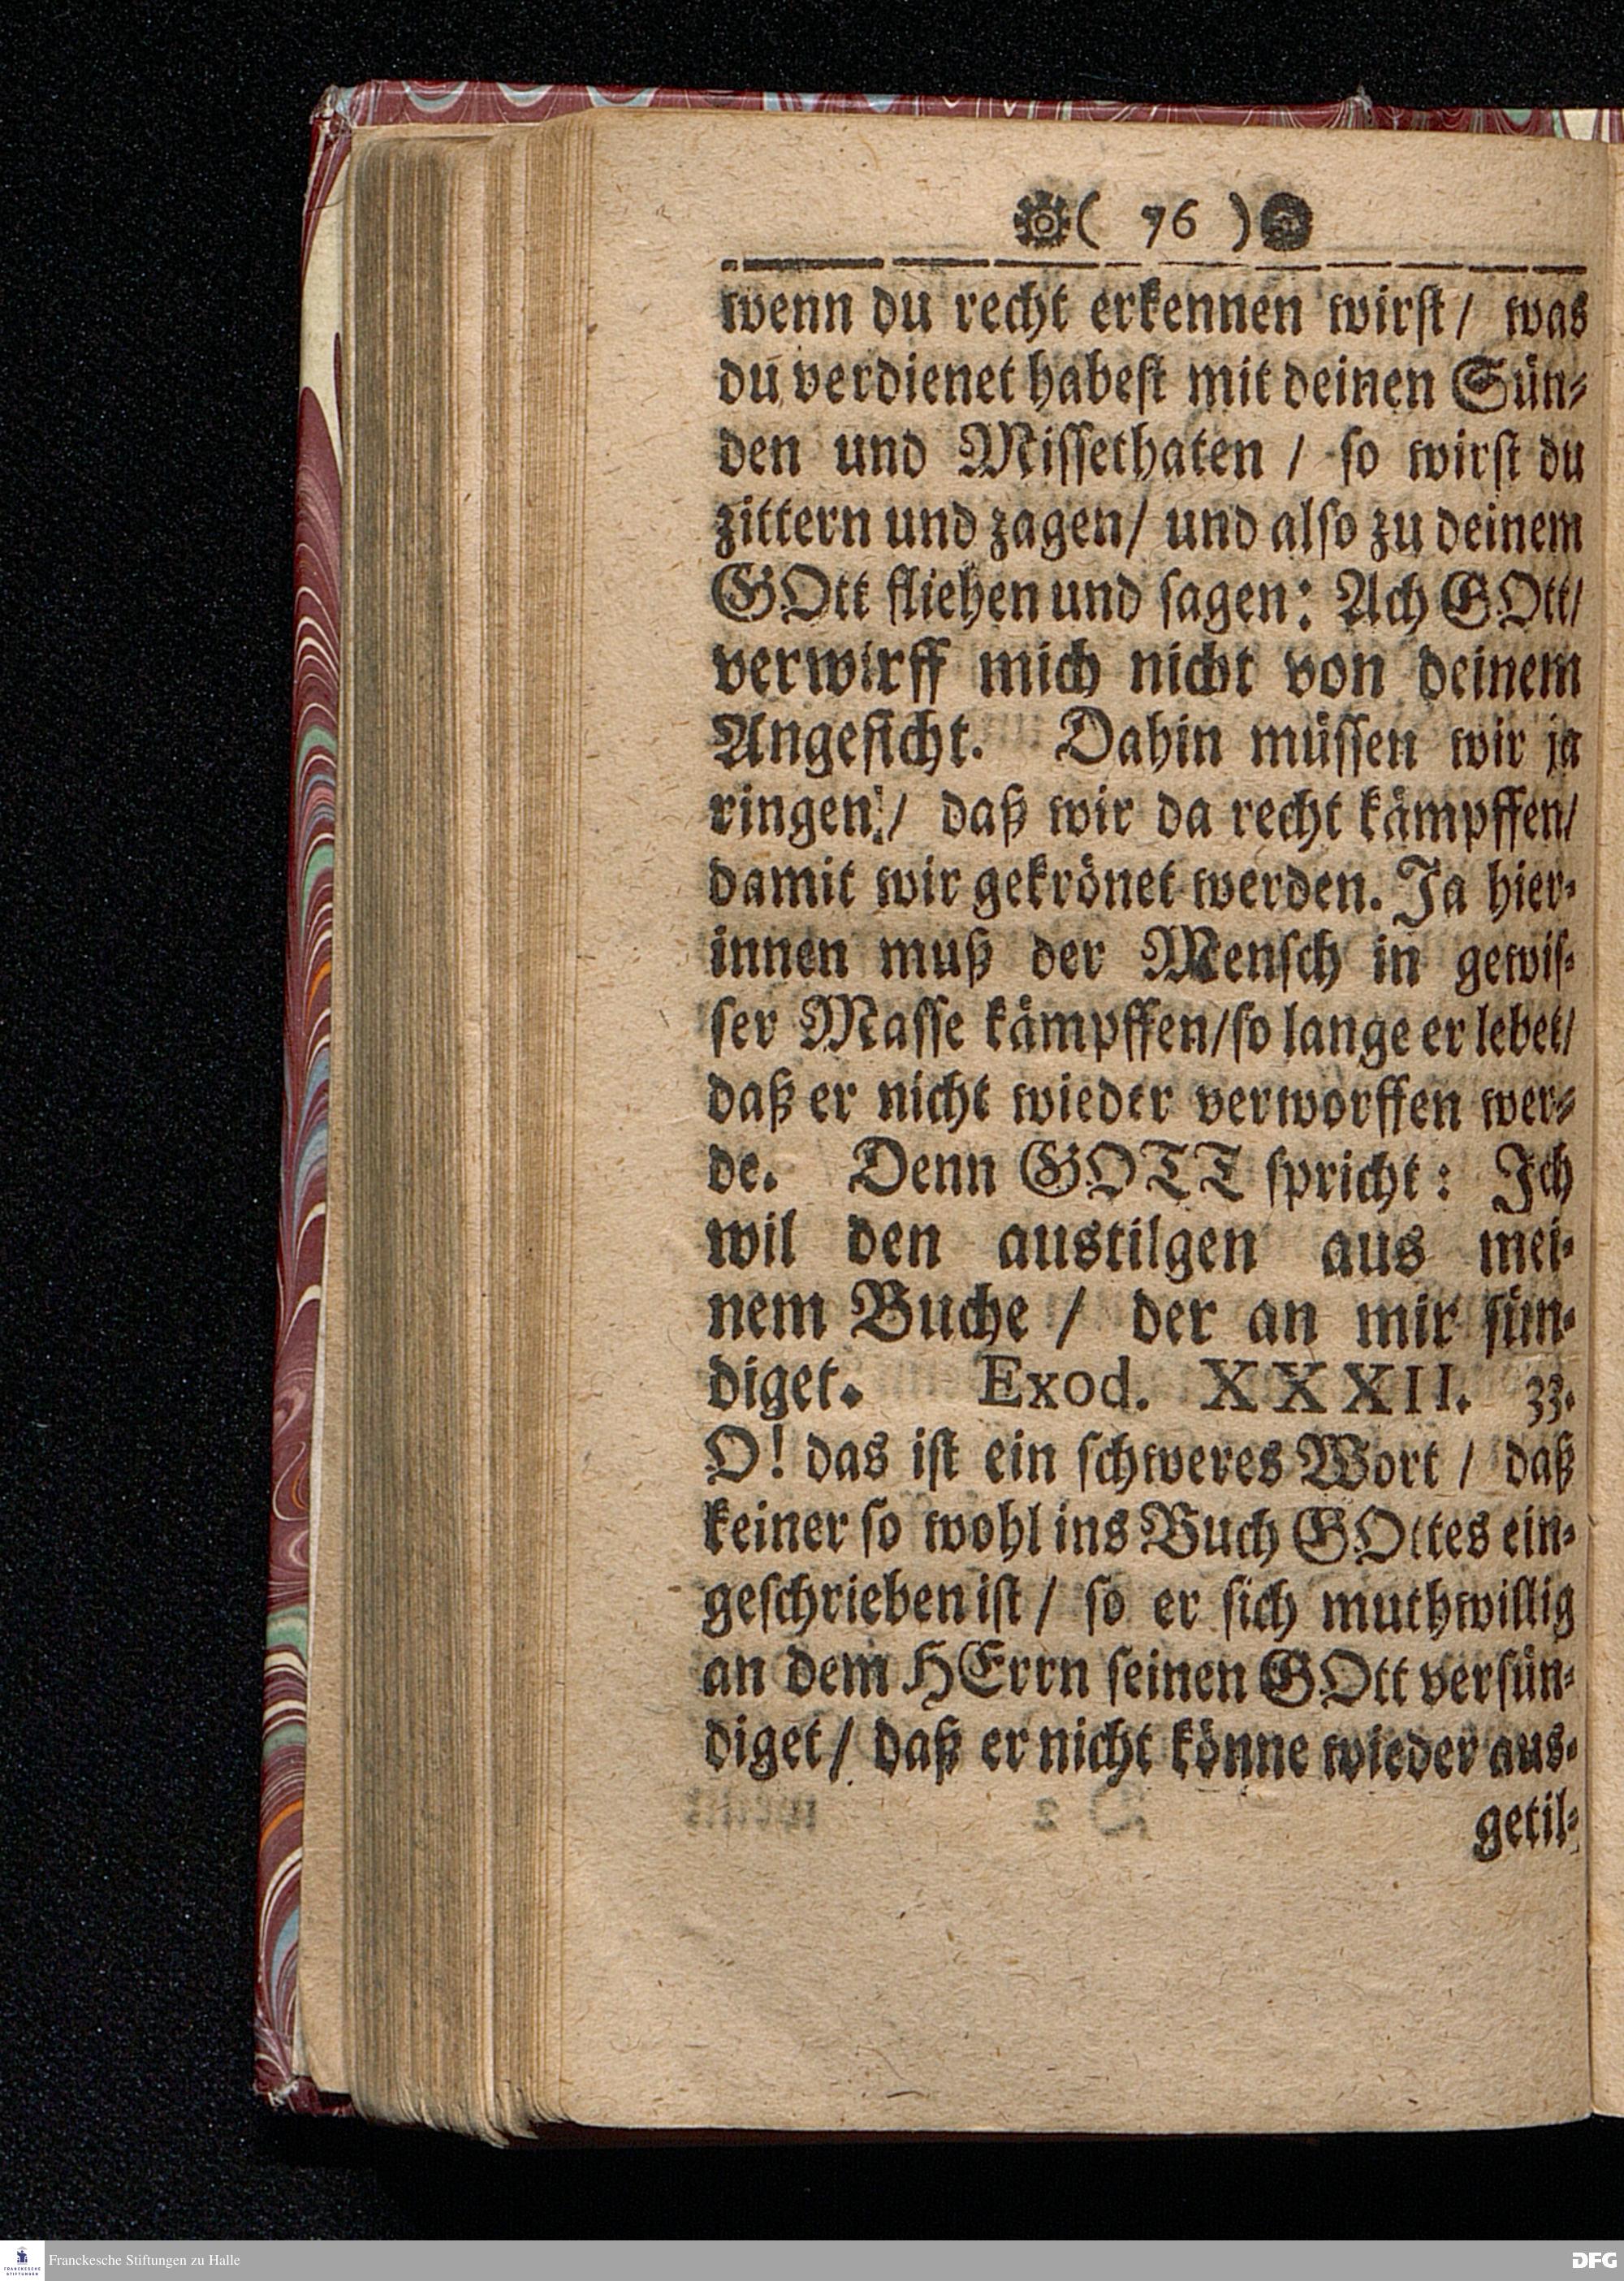 ( 76 )
wenn du recht erkennen wirſt / was
du verdienet habeſt mit deinen Sün⸗
den und Miſſethaten / ſo wirſt du
zittern und zagen / und alſo zu deinem
GOtt fliehen und ſagen: Ach GOtt /
verwirff mich nicht von deinem
Angeſicht. Dahin müſſen wir ja
ringen / daß wir da recht kämpffen /
damit wir gekrönet werden. Ja hier⸗
innen muß der Menſch in gewiſ⸗
ſer Maſſe kämpffen / ſo lange er lebet /
daß er nicht wieder verworffen wer⸗
de. Denn GOTT ſpricht: Ich
wil den austilgen aus mei⸗
nem Buche / der an mir ſün⸗
diget. Exod. XXXII. 33.
O! das iſt ein ſchweres Wort / daß
keiner ſo wohl ins Buch GOttes ein⸗
geſchrieben iſt / ſo er ſich muthwillig
an dem HErrn ſeinen GOtt verſün⸗
diget / daß er nicht könne wieder aus⸗
getil⸗
FRANCKESCHE STIFTUNGEN
Franckesche Stiftungen zu Halle
DFG